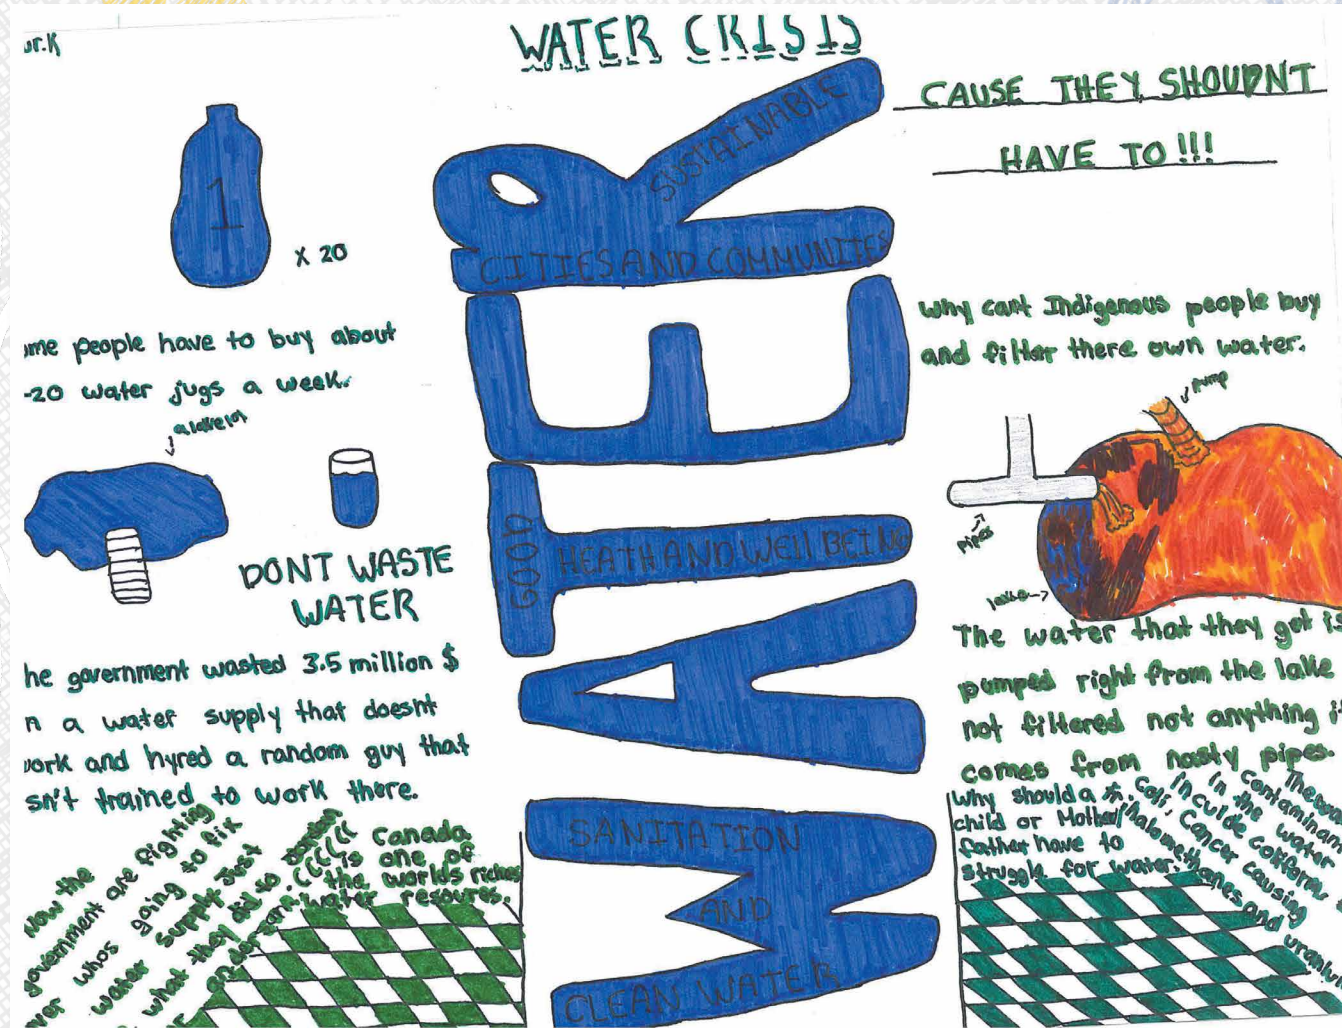 WATER CRISIS
ur.K
1
X 20
ome people have to buy about
-20 water jugs a week.
DONT WASTE
WATER
he government wasted 3.5 million $
n a water supply that doesnt
work and hyred a random guy that
sn't trained to work there.
Now the
government are fighting
over whos going to fix
water supply just
what they did so
Canada
is one of
the worlds riches
water resoures.
WATER
SUSTAINABLE
CITIES AND COMMUNITES
GOOD
HEATH AND WEll BEING
SANITATION
AND
CLEAN WATER
CAUSE THEY SHOUDNT
HAVE TO!!!
Why cant Indigenous people buy
and filter there own water.
Pump
Pipes
The water that they got is
pumped right from the lake
not filtered not anything it
comes from nasty pipes.
Why should a
child or Mother/
father have to
struggle for water.
Contaminan
in the water
inculde coliform,
Coli, Cancer causing
halomethanes and uranium